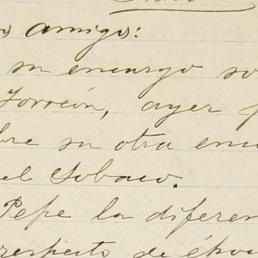 os amigos:
su encargo so
Torreón, ayer
bre su otra enc
el Sobaco.
Pepe la diferen
respecto de épo